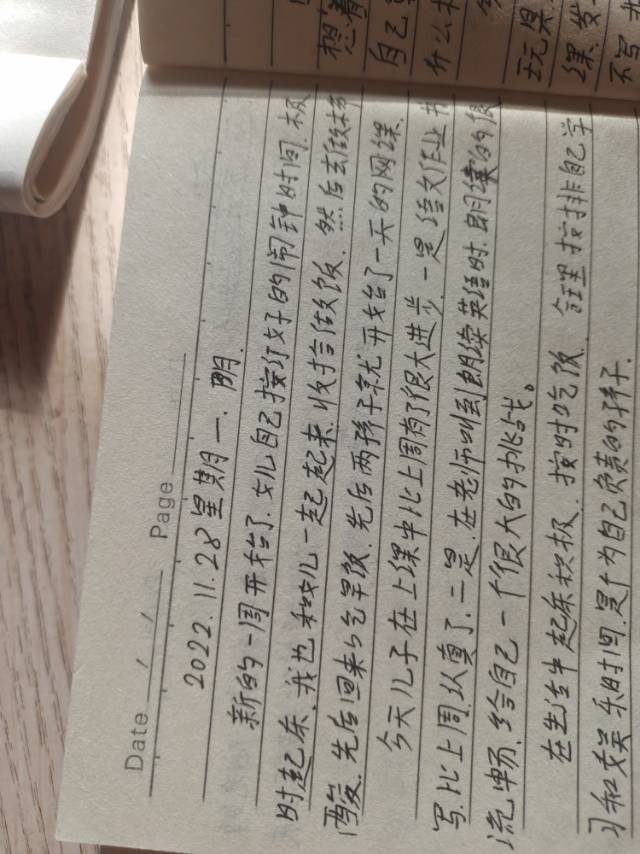 想着
自己
什么
玩果
课.发
不写
Date / / Page
2022.11.28 星期一. 阴.
新的一周开始了.女儿自己按订好的闹钟时间.极
时起床.我也和女儿一起起来.收拾做饭.然后去做核
酸.先后回来吃早饭.先后两孩子就开始了一天的网课.
今天儿子在上课中比上周有了很大进步.一是语文作业书
写.比上周认真了.二是.在老师叫到朗读英语时.朗读的很
流畅.给自己一个很大的挑战。
在生活中起床积极.按时吃饭.合理按排自己学
习和娱乐时间.是个为自己负责的孩子.